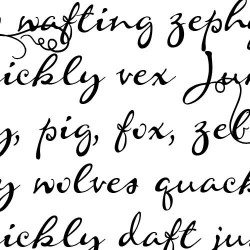 wafting zeph
ickly vex Ju
y, pig, fox, zeb
y wolves quack
ickly daft ju